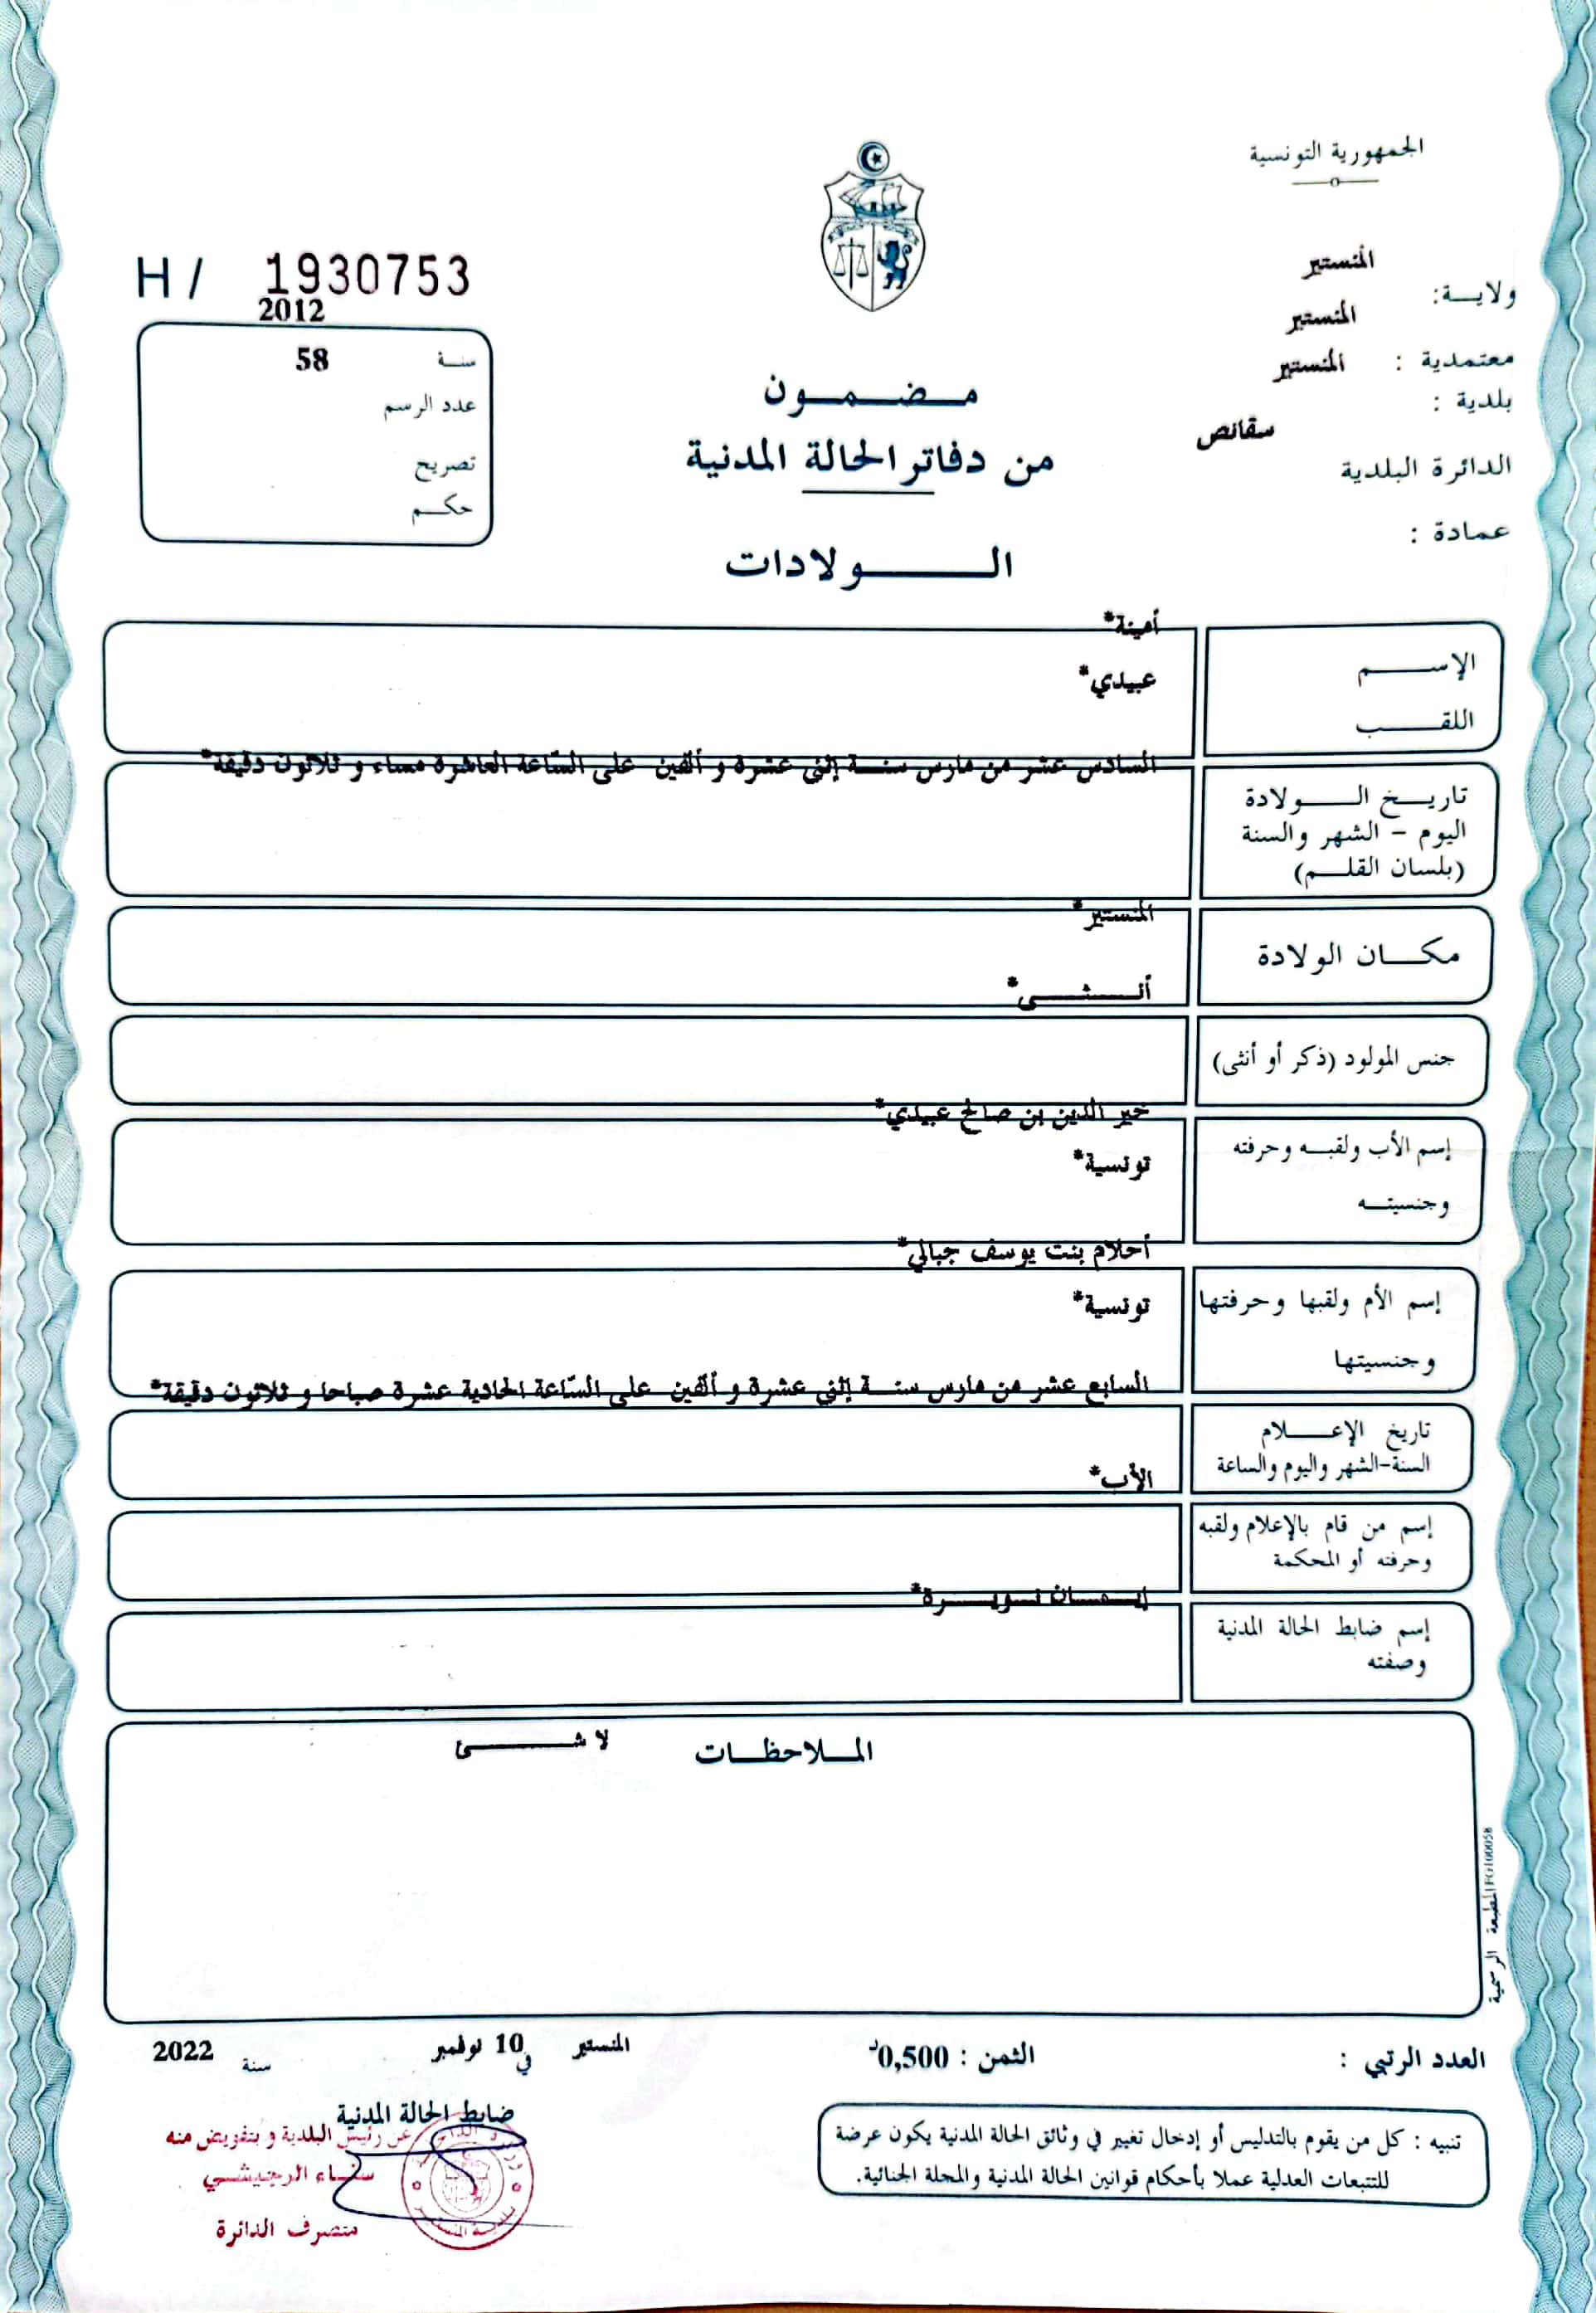 الجمهورية التونسية
المنستير
ولايـــة:
المنستير
معتمدية :
المنستير
بلدية :
سقانص
الدائرة البلدية
عمادة :
H / 1930753
2012
سنــة 58
عدد الرسم
تصريح
حكــم
مـــضـــمـــون
من دفاتر الحالة المدنية
الـــــولادات
أمينة*
الإســـــم
عبيدي*
اللقـــب
السادس عشر من مارس سنـــة إثني عشرة و ألفين على السّاعة العاشرة مساء و ثلاثون دقيقة*
تاريـــخ الـــــولادة
اليوم - الشهر والسنة
(بلسان القلـــم)
المنستير*
مكـــان الولادة
أنـــثـــى*
جنس المولود (ذكر أو أنثى)
خير الدين بن صالح عبيدي*
إسم الأب ولقبـــه وحرفته
تونسية*
وجنسيتـــه
أحلام بنت يوسف جبالي*
إسم الأم ولقبها وحرفتها
تونسية*
وجنسيتها
السابع عشر من مارس سنـــة إثني عشرة و ألفين على السّاعة الحادية عشرة صباحا و ثلاثون دقيقة*
تاريخ الإعـــــلام
السنة-الشهر واليوم والساعة
الأب*
إسم من قام بالإعلام ولقبه
وحرفته أو المحكمة
إيـــمـــان
إسم ضابط الحالة المدنية
وصفته
المـــلاحظـــات لا شـــــئ
المطبعة الرسمية
العدد الرتبي :
الثمن : 0,500د
المنستير في 10 نوفمبر سنة 2022
ضابط الحالة المدنية
عن رئيس البلدية و بتفويض منه
سنـــاء الرجيشـــي
متصرف الدائرة
تنبيه : كل من يقوم بالتدليس أو إدخال تغيير في وثائق الحالة المدنية يكون عرضة
للتتبعات العدلية عملا بأحكام قوانين الحالة المدنية والمجلة الجنائية.